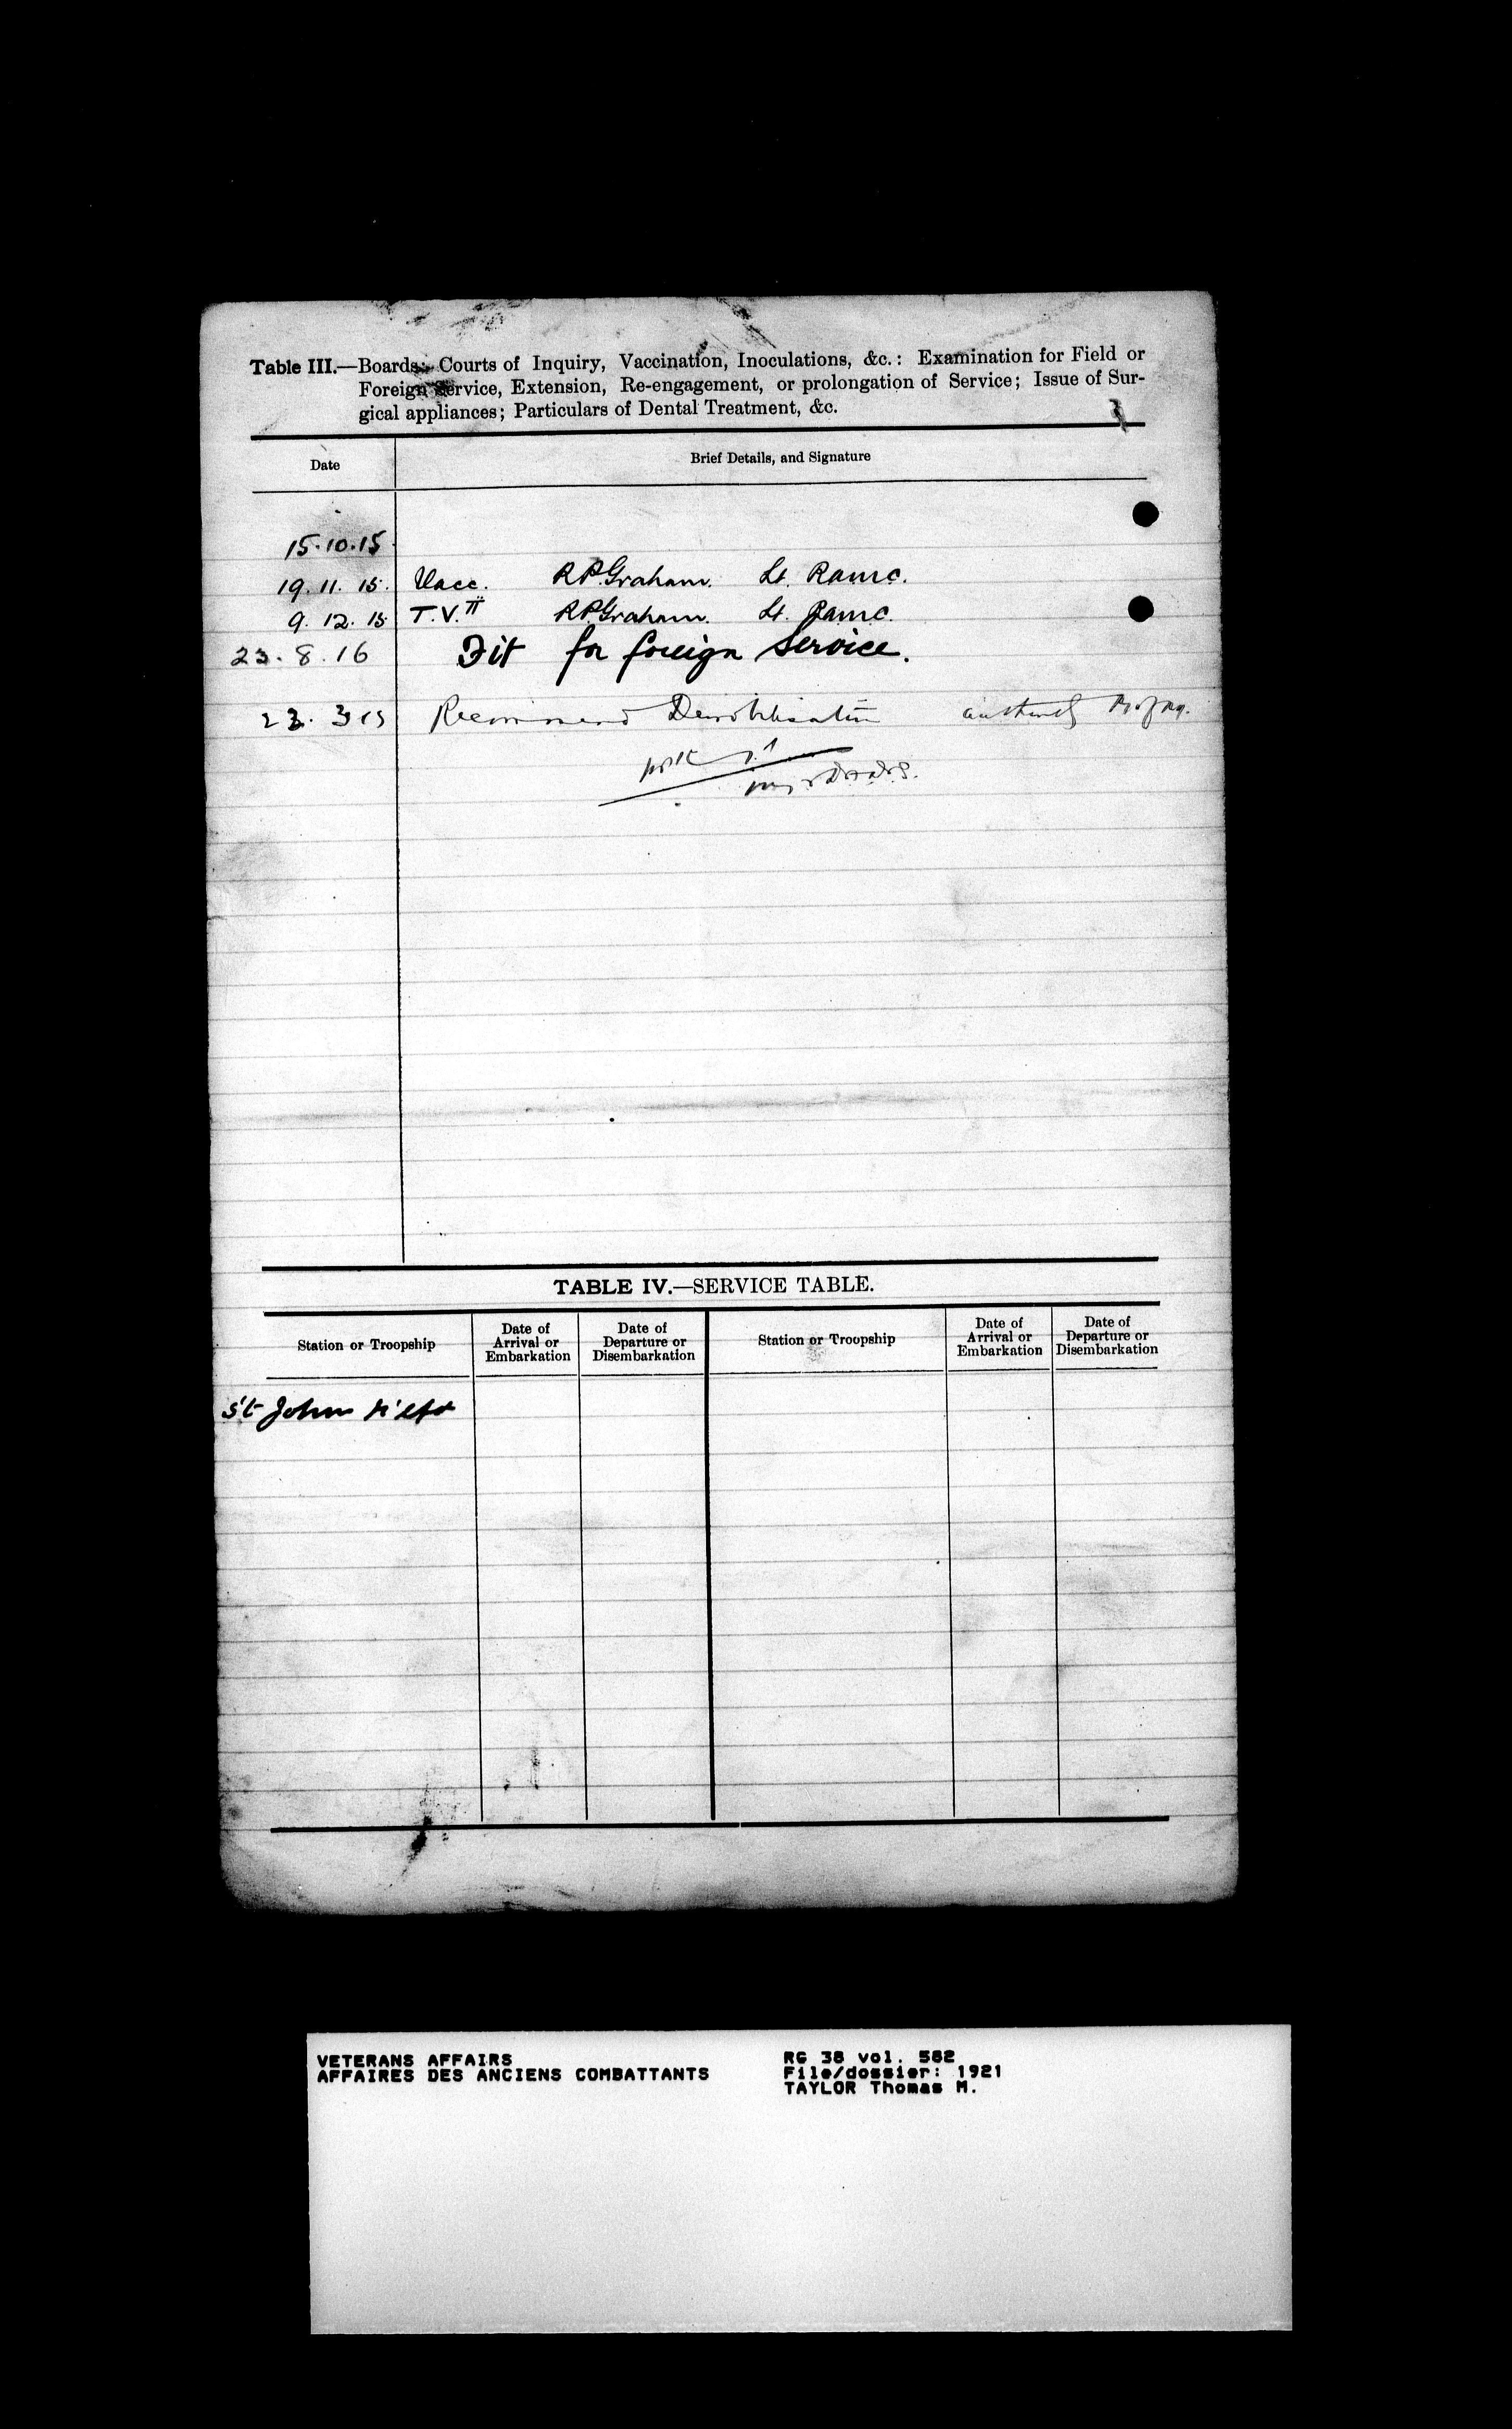 Table III.—Boards; Courts of Inquiry, Vaccination, Inoculations, &c.: Examination for Field or
Foreign Service, Extension, Re-engagement, or prolongation of Service; Issue of Sur-
gical appliances; Particulars of Dental Treatment, &c.
Date Brief Details, and Signature
15.10.15
19.11.15. Vacc. RPGraham. Lt. RAMC.
9.12.15 T.V.II RPGraham. Lt. RAMC.
23.8.16 Fit for foreign service.
Recommend Demobilisation
TABLE IV.—SERVICE TABLE.
Station or Troopship Date of Arrival or Embarkation Date of Departure or Disembarkation Station or Troopship Date of Arrival or Embarkation Date of Departure or Disembarkation
St Johns N'fld
VETERANS AFFAIRS
AFFAIRES DES ANCIENS COMBATTANTS
RG 38 vol. 582
File/dossier: 1921
TAYLOR Thomas M.